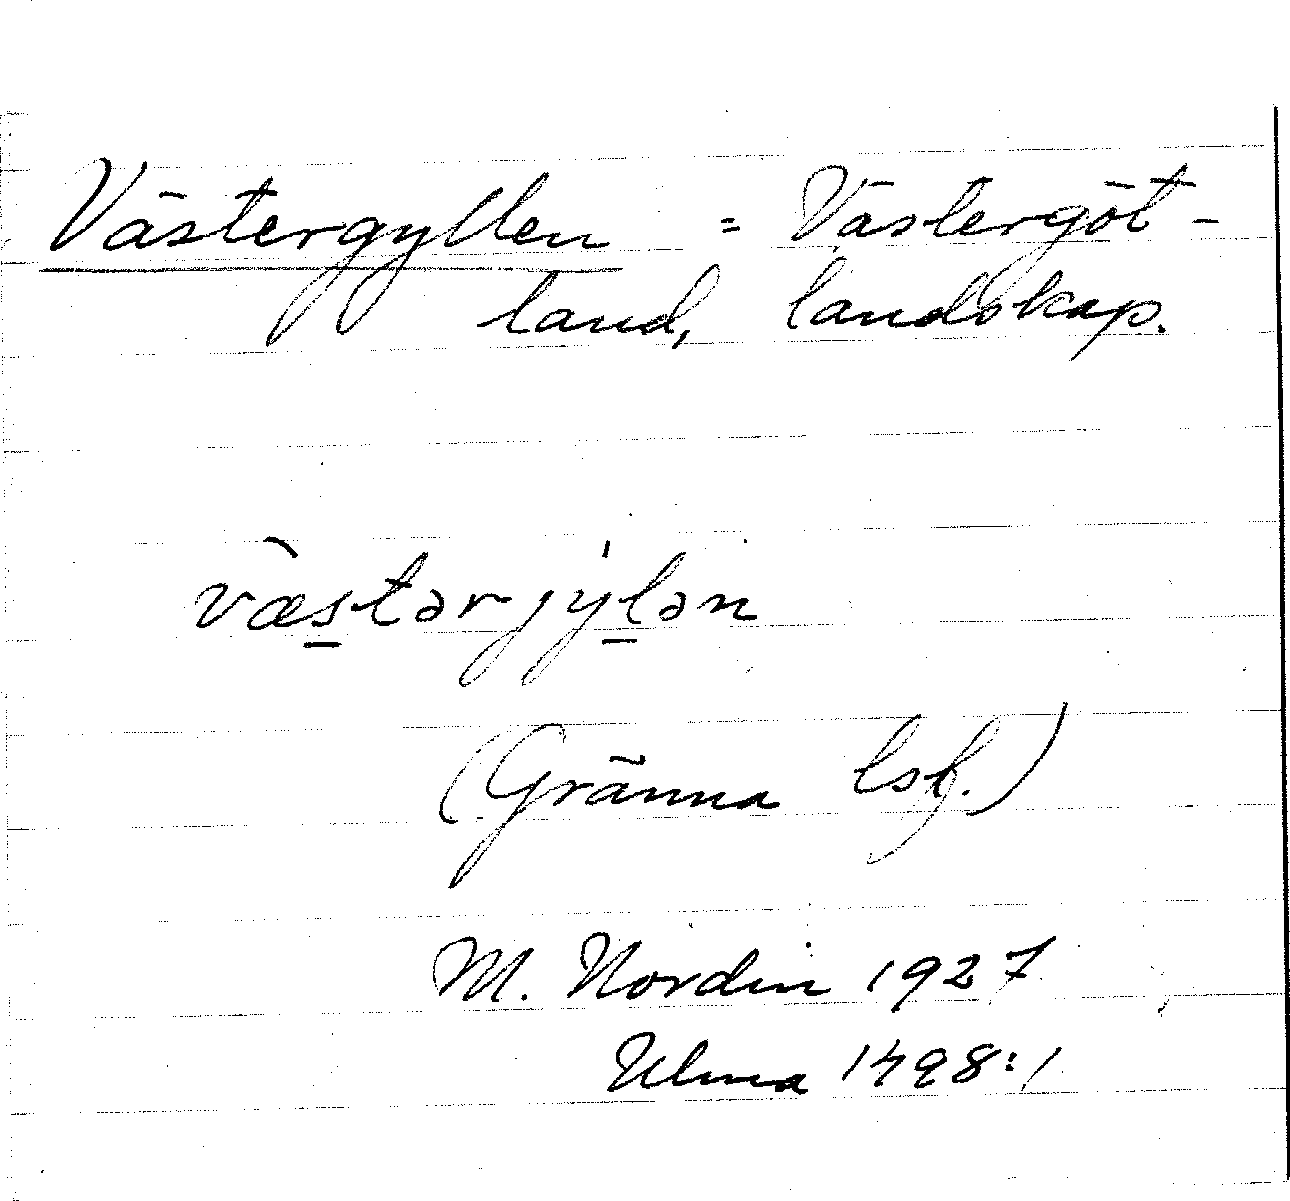 Västergyllen = Västergöt-
land, landskap.
væ̀stərjýlən
(Gränna lsf.)
M. Nordin 1927
Ulma 1498:1